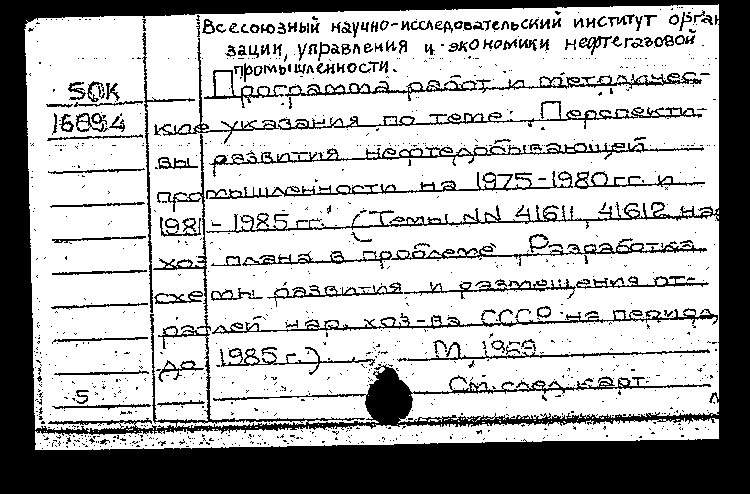 Всесоюзный научно-исследовательский институт орган
зации, управления и экономики нефтегазовой
промышленности.
50К
Программа работ и методичес-
16894
кие указания по теме: „Перспекти-
вы развития нефтедобывающей
промышленности на 1975-1980гг. и
1981-1985гг." (Темы NN 41611, 41612 нар
хоз плана в проблеме „Разработка
схемы развития и размещения от-
раслей нар. хоз-ва СССР на период
до 1985 г.) М, 1969
5
См. след. карт